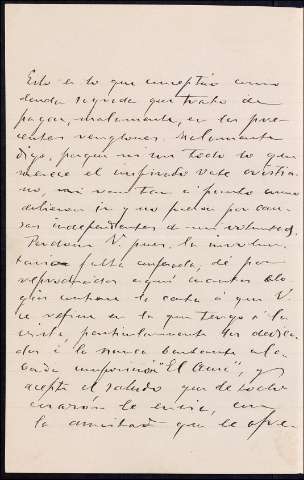 Esto es lo que conceptúo como
deuda sagrada que trato de
pagar, malamente, en los pre-
sentes renglones. Malamente
digo, porque ni va todo lo que
merece el inspirado vate
no, ni van tan a punto como
debieran ir y no puedo por cau-
sas independientes de mi voluntad.
Perdone V. pues, la involun-
taria falta confesada, dé por
reproducidos aquí cuantos elo-
gios contiene la carta á que V.
se refiere en la que tengo á la
vista, particularmente los dedica-
dos á la nunca bastante ala-
bada composición "El", y
acepte el saludo que de todo
corazón le envía, con
la amistad que le ofre-